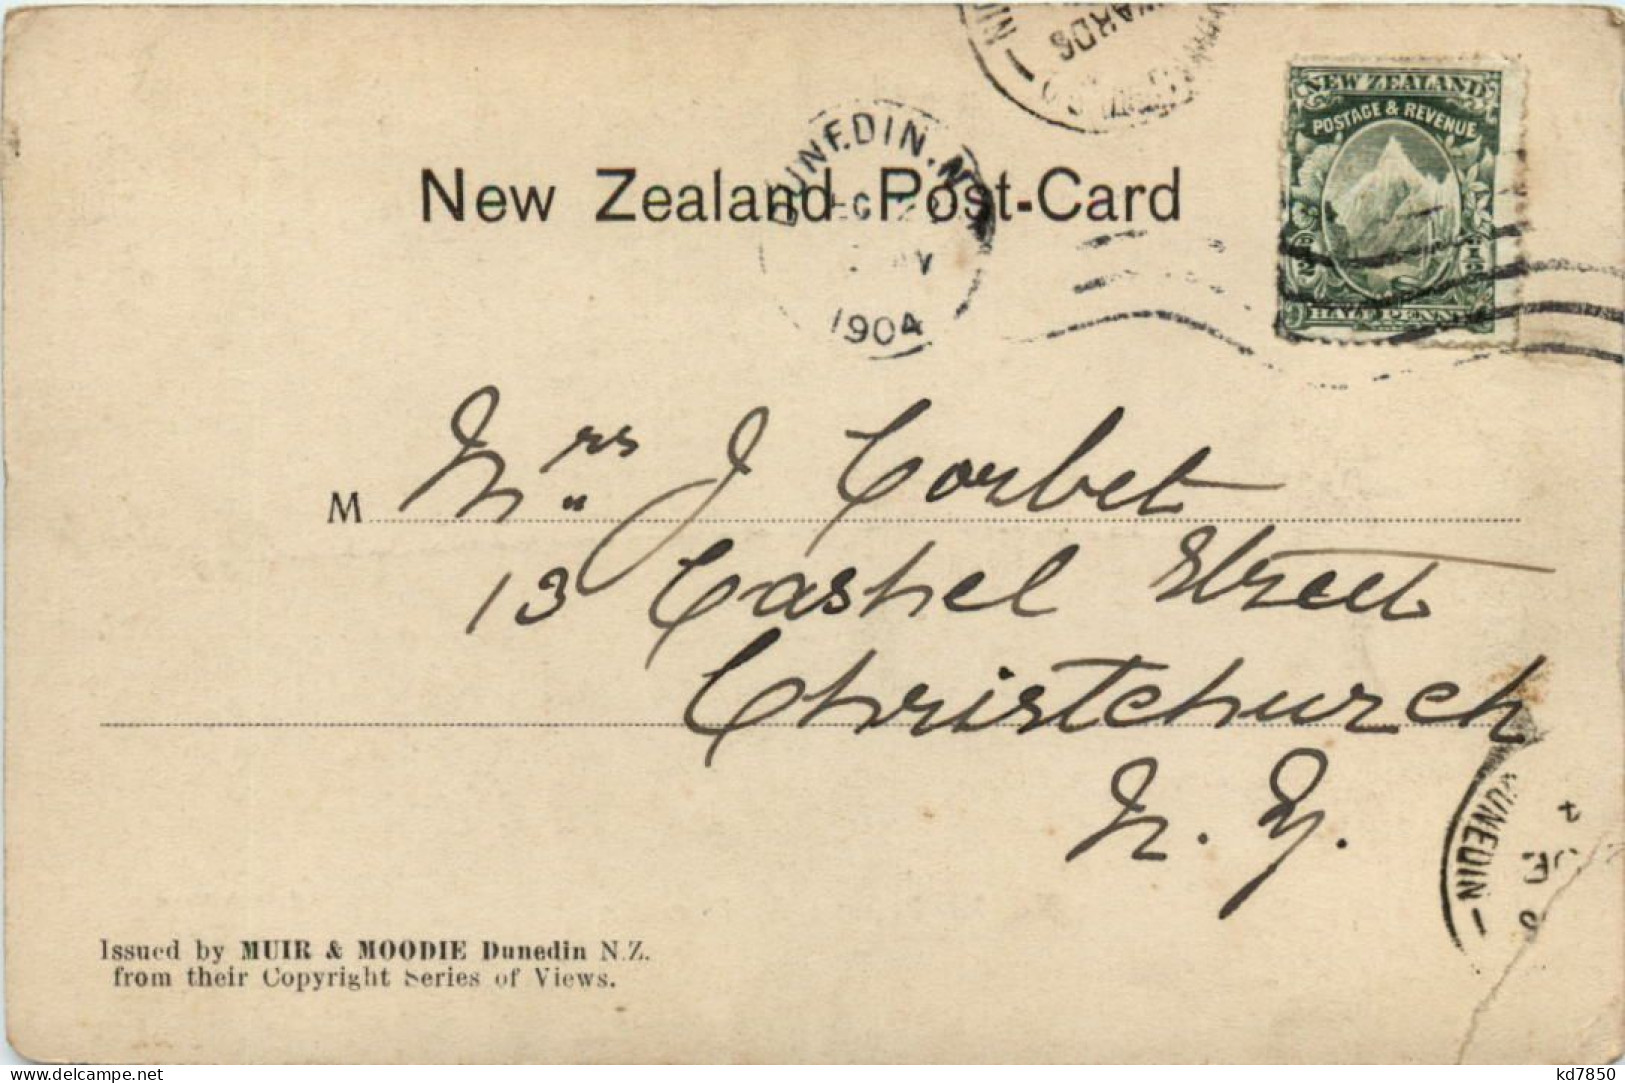 WARDS
DUNEDIN. N
EC
1904
NEW ZEALAND
POSTAGE & REVENUE
HALF PENNY
New Zealand Post-Card
M Mrs J Corbet
13 Cashel Street
Christchurch
N. Z.
DUNEDIN
Issued by MUIR & MOODIE Dunedin N.Z.
from their Copyright Series of Views.
www.delcampe.net
kd7850